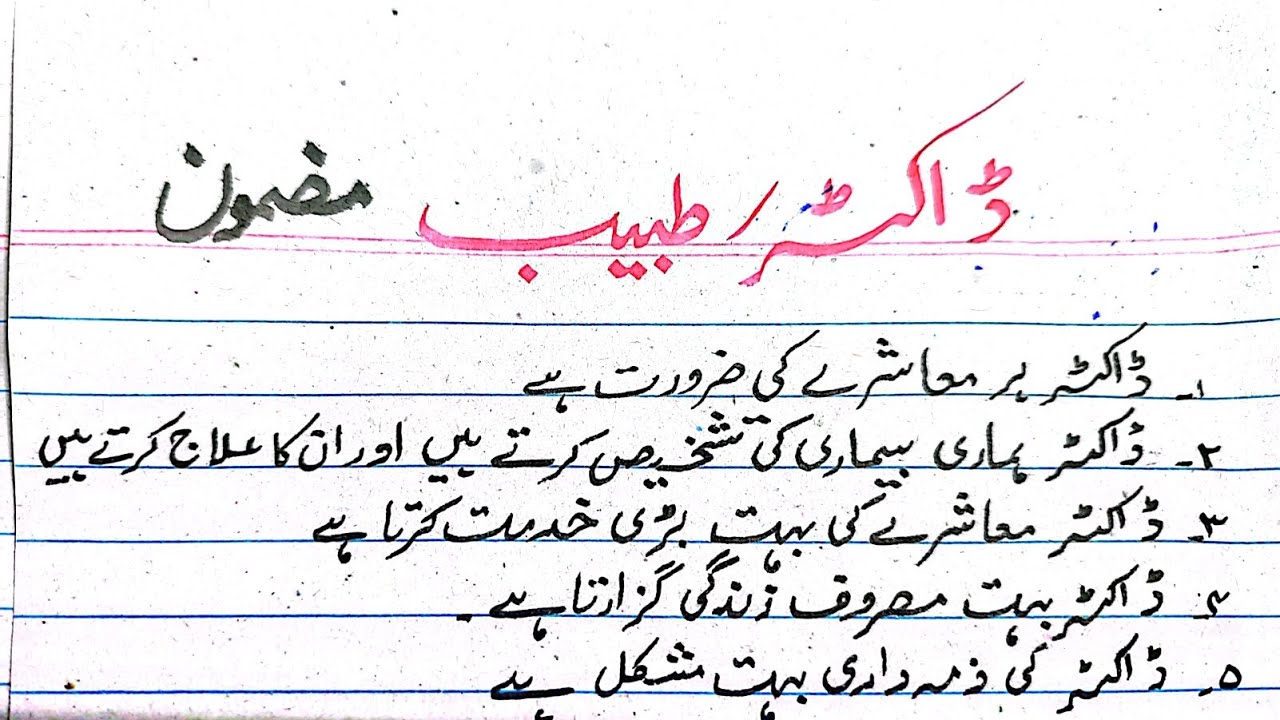 ڈاکٹر/طبیب مضمون
۱۔ ڈاکٹر ہر معاشرے کی ضرورت ہے
۲۔ ڈاکٹر ہماری بیماری کی تشخیص کرتے ہیں اور ان کا علاج کرتے ہیں
۳۔ ڈاکٹر معاشرے کی بہت بڑی خدمت کرتا ہے
۴۔ ڈاکٹر بہت مصروف زندگی گزارتا ہے۔
۵۔ ڈاکٹر کی ذمہ داری بہت مشکل ہے